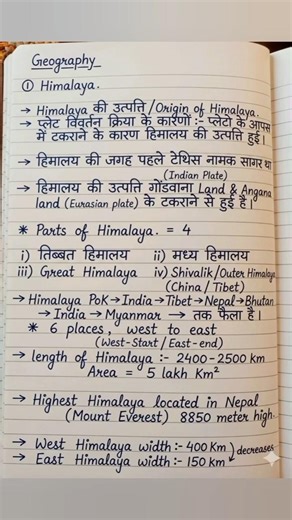 Geography
① Himalaya.
→ Himalaya की उत्पत्ति/Origin of Himalaya.
→ प्लेट विवर्तन क्रिया के कारणों :- प्लेटो के आपस
में टकराने के कारण हिमालय की उत्पत्ति हुई।
→ हिमालय की जगह पहले टेथिस नामक सागर था
(Indian Plate)
→ हिमालय की उत्पत्ति गोंडवाना Land & Angana
land (Eurasian plate) के टकराने से हुई है।
* Parts of Himalaya. = 4
i) तिब्बत हिमालय ii) मध्य हिमालय
iii) Great Himalaya iv) Shivalik/Outer Himalaya
(China / Tibet)
→ Himalaya PoK→India→Tibet→Nepal→Bhutan
→India→Myanmar → तक फैला है।
* 6 places, west to east
(West-Start / East-end)
→ length of Himalaya :- 2400-2500 Km
Area = 5 lakh Km²
→ Highest Himalaya located in Nepal
(Mount Everest) 8850 meter high.
→ West Himalaya width :- 400 Km
→ East Himalaya width :- 150 km
decreases